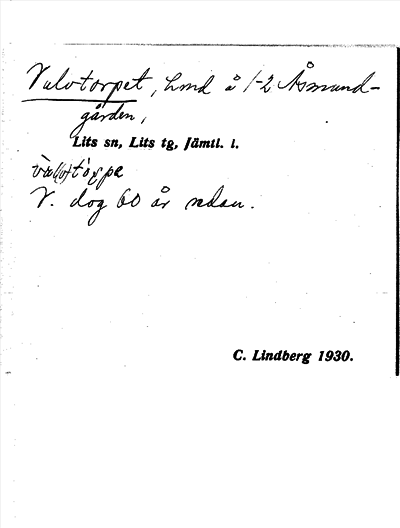 Valvtorpet, hmd å 1-2 Åsmund-
gården,
Lits sn, Lits tg, Jämtl. l.
V. dog 60 år sedan.
C. Lindberg 1930.